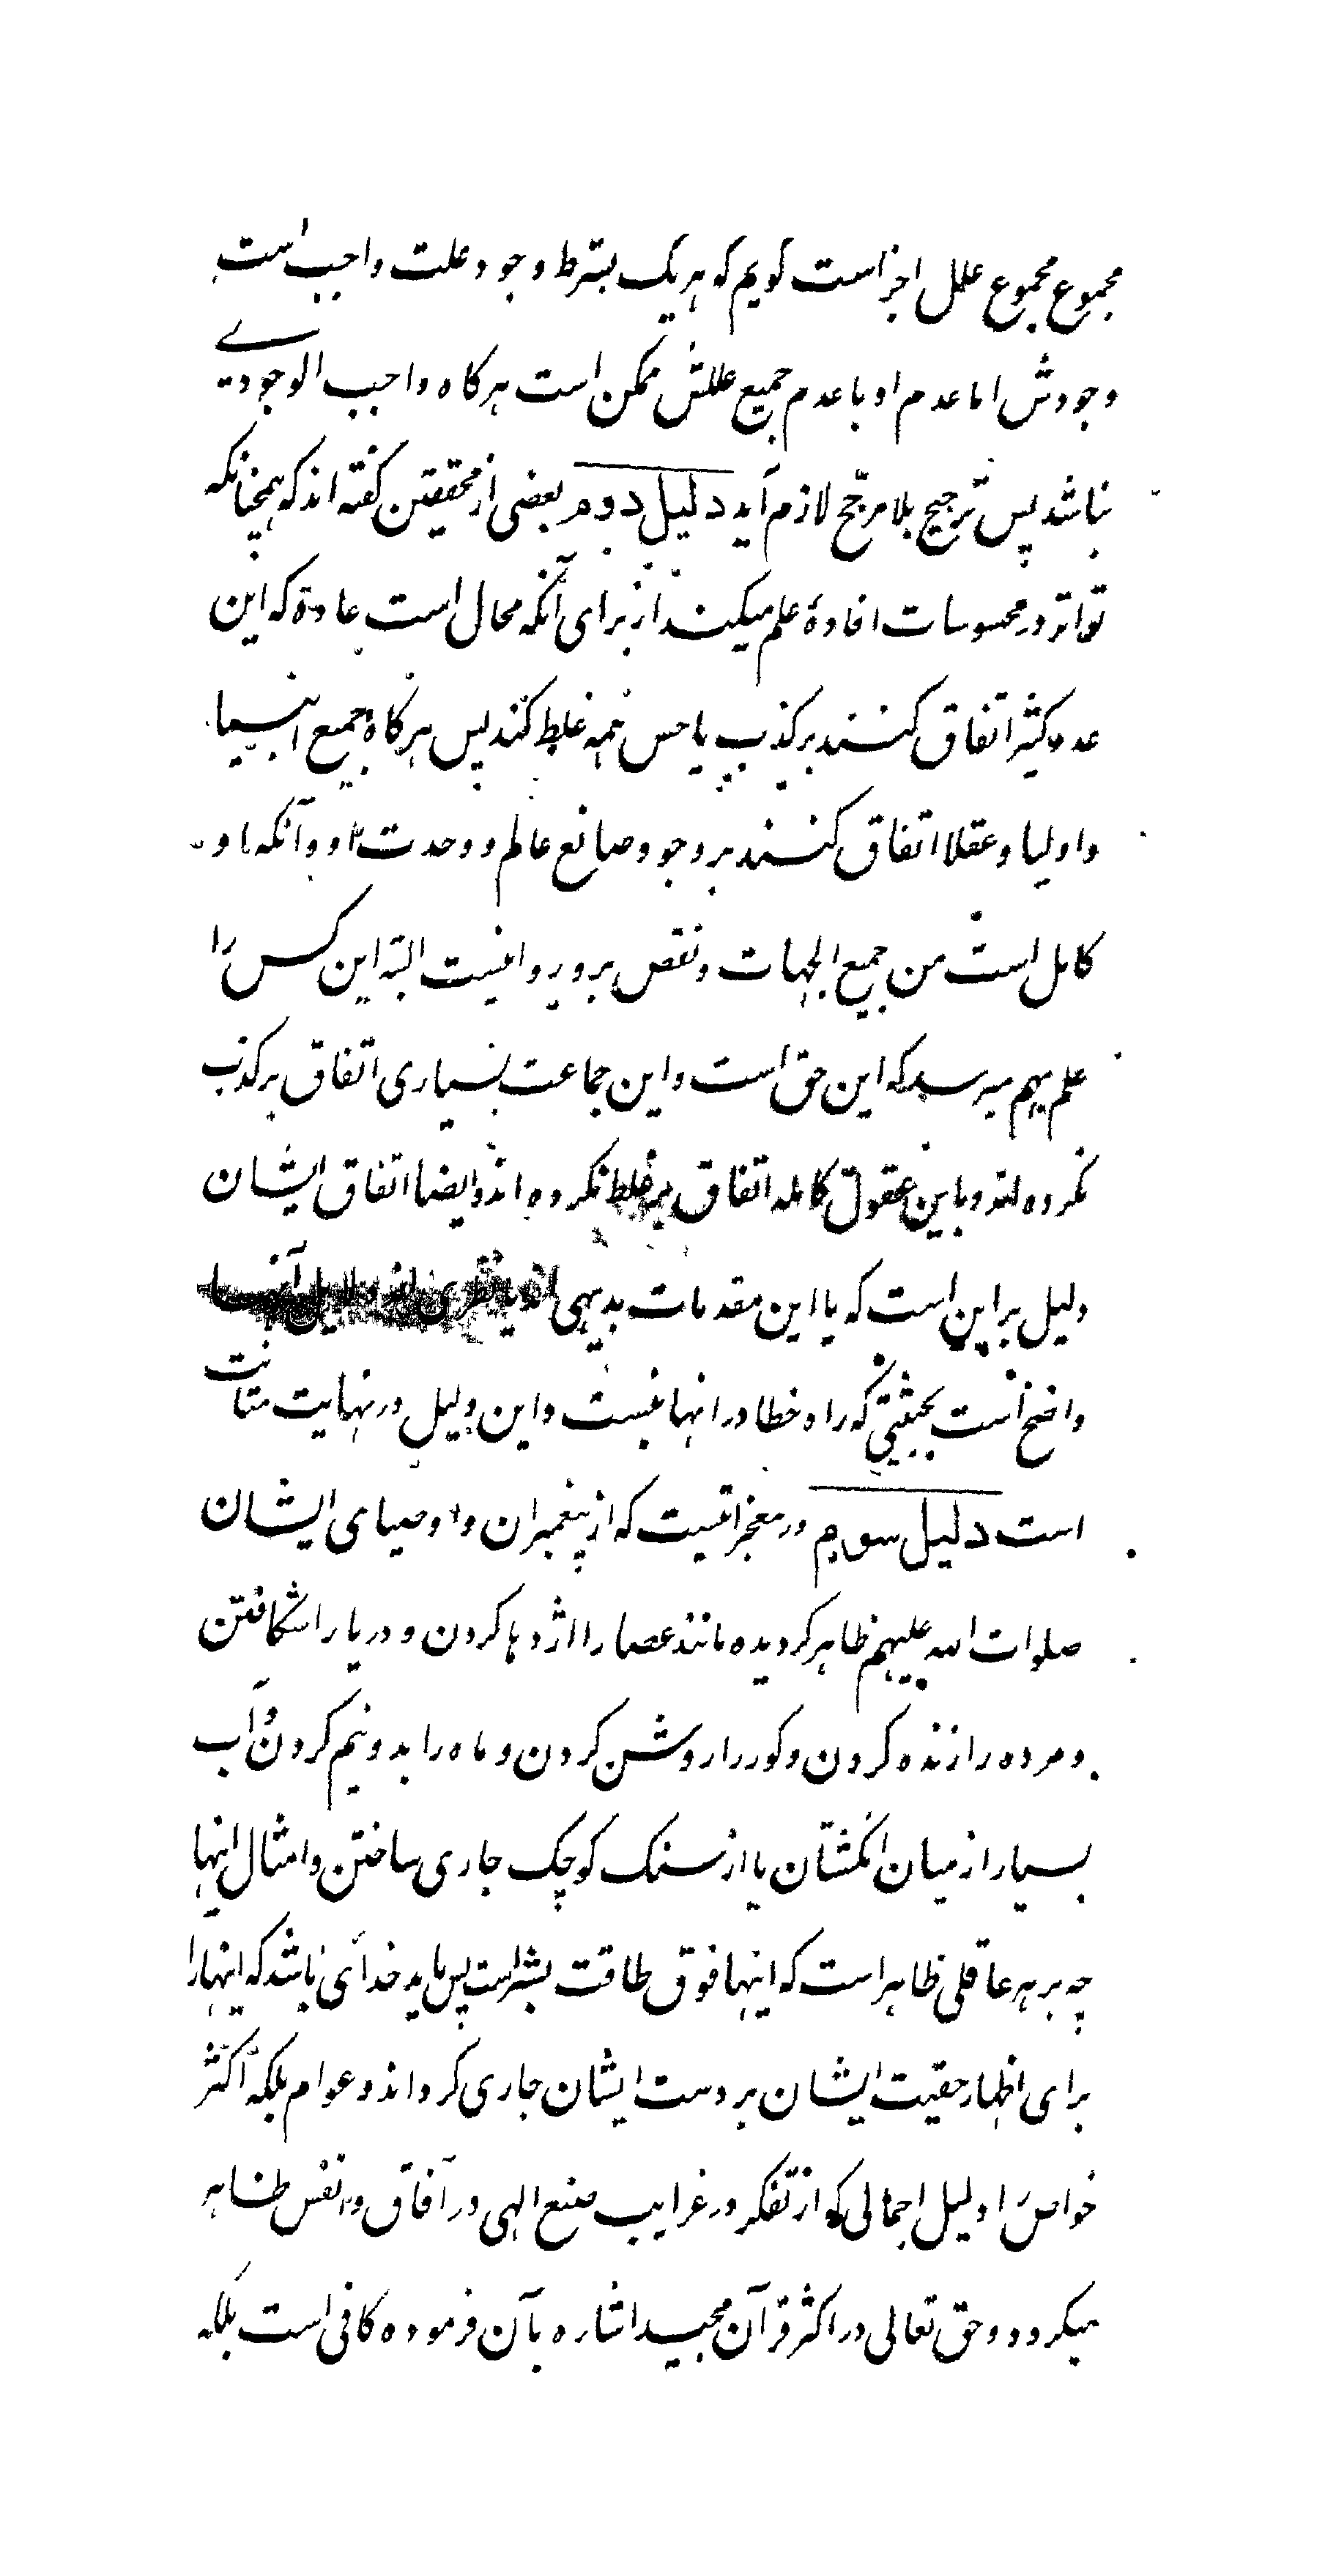 مجموع مجموع علل اجزاست کویم که هریک بشرط وجود علت واجب است
وجودش اما عدم او با عدم جمیع عللش ممکن است هرکاه واجب الوجودی
نباشد پس ترجیح بلا مرجّح لازم آید دلیل دوم بعضی از محققین کفته اند که همچنانکه
تواتر در محسوسات افادهٔ علم میکند از برای آنکه محال است عادة که این
عدد کثیر اتفاق کنند بر کذب یا حس همه غلط کند پس هرکاه جمیع انبیا
و اولیا و عقلا اتفاق کنند بر وجود صانع عالم و وحدت او و آنکه او
کامل است من جمیع الجهات و نقص بر وی روا نیست البته این کس را
علم بهم میرسد که این حق است و این جماعت بسیاری اتفاق بر کذب
نکرده اند و باین عقول کامله اتفاق بر غلط نکرده اند و ایضا اتفاق ایشان
دلیل بر این است که یا این مقدمات بدیهی اند یا نظری اند و دلایل آنها
واضح است بحیثیتی که راه خطا در انها نیست و این دلیل در نهایت متانت
است دلیل سوم در معجزاتیست که از پیغمبران و اوصیای ایشان
صلوات الله علیهم ظاهر کردیده مانند عصا را اژدها کردن و دریا را شکافتن
و مرده را زنده کردن و کور را روشن کردن و ماه را بدو نیم کردن و آب
بسیار از میان انکشتان یا از سنک کوچک جاری ساختن و امثال اینها
چه بر هر عاقلی ظاهر است که اینها فوق طاقت بشر است پس باید خدائی باشد که اینها را
برای اظهار حقیت ایشان بر دست ایشان جاری کرداند و عوام بلکه اکثر
خواص را دلیل اجمالی که از تفکر در غرایب صنع الهی در آفاق و انفس ظاهر
میکردد و حق تعالی در اکثر قرآن مجید اشاره بآن فرموده کافی است بلکه